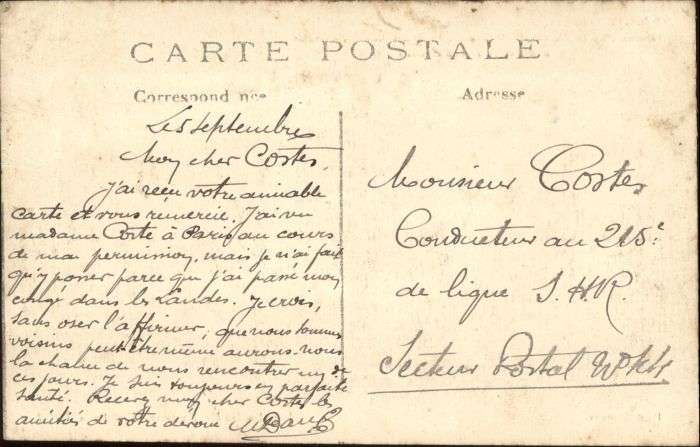 CARTE POSTALE
Correspond nce
Le 5 septembre
Mon cher Costes,
J'ai reçu votre aimable
carte et vous remercie. J'ai vu
madame Coste à Paris au cours
de ma permission, mais je n'ai fait
qu'y passer parce que j'ai passé mon
congé dans les Landes. Je crois,
sans oser l'affirmer, que nous sommes
voisins peut-être même aurons-nous
la chance de nous rencontrer un de
ces jours. Je suis toujours en parfaite
santé. Recevez mon cher Costes les
amitiés de votre dévoué
Adresse
Monsieur Costes
Conducteur au 215e
de ligne S.H.R.
Secteur Postal